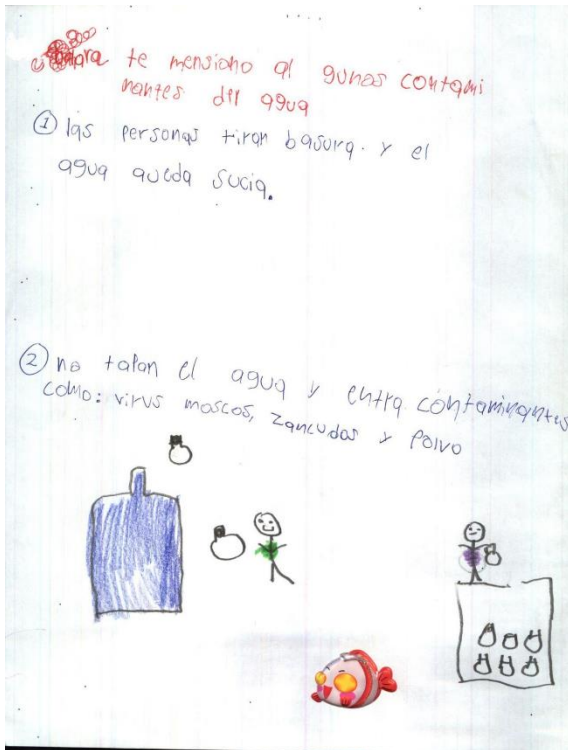 te mensiono al gunas contami
nantes del agua
1 las personas tiran basura. y el
agua queda sucia.
2 no tapan el agua y entra contaminantes
como: virus moscos, zancudos y polvo